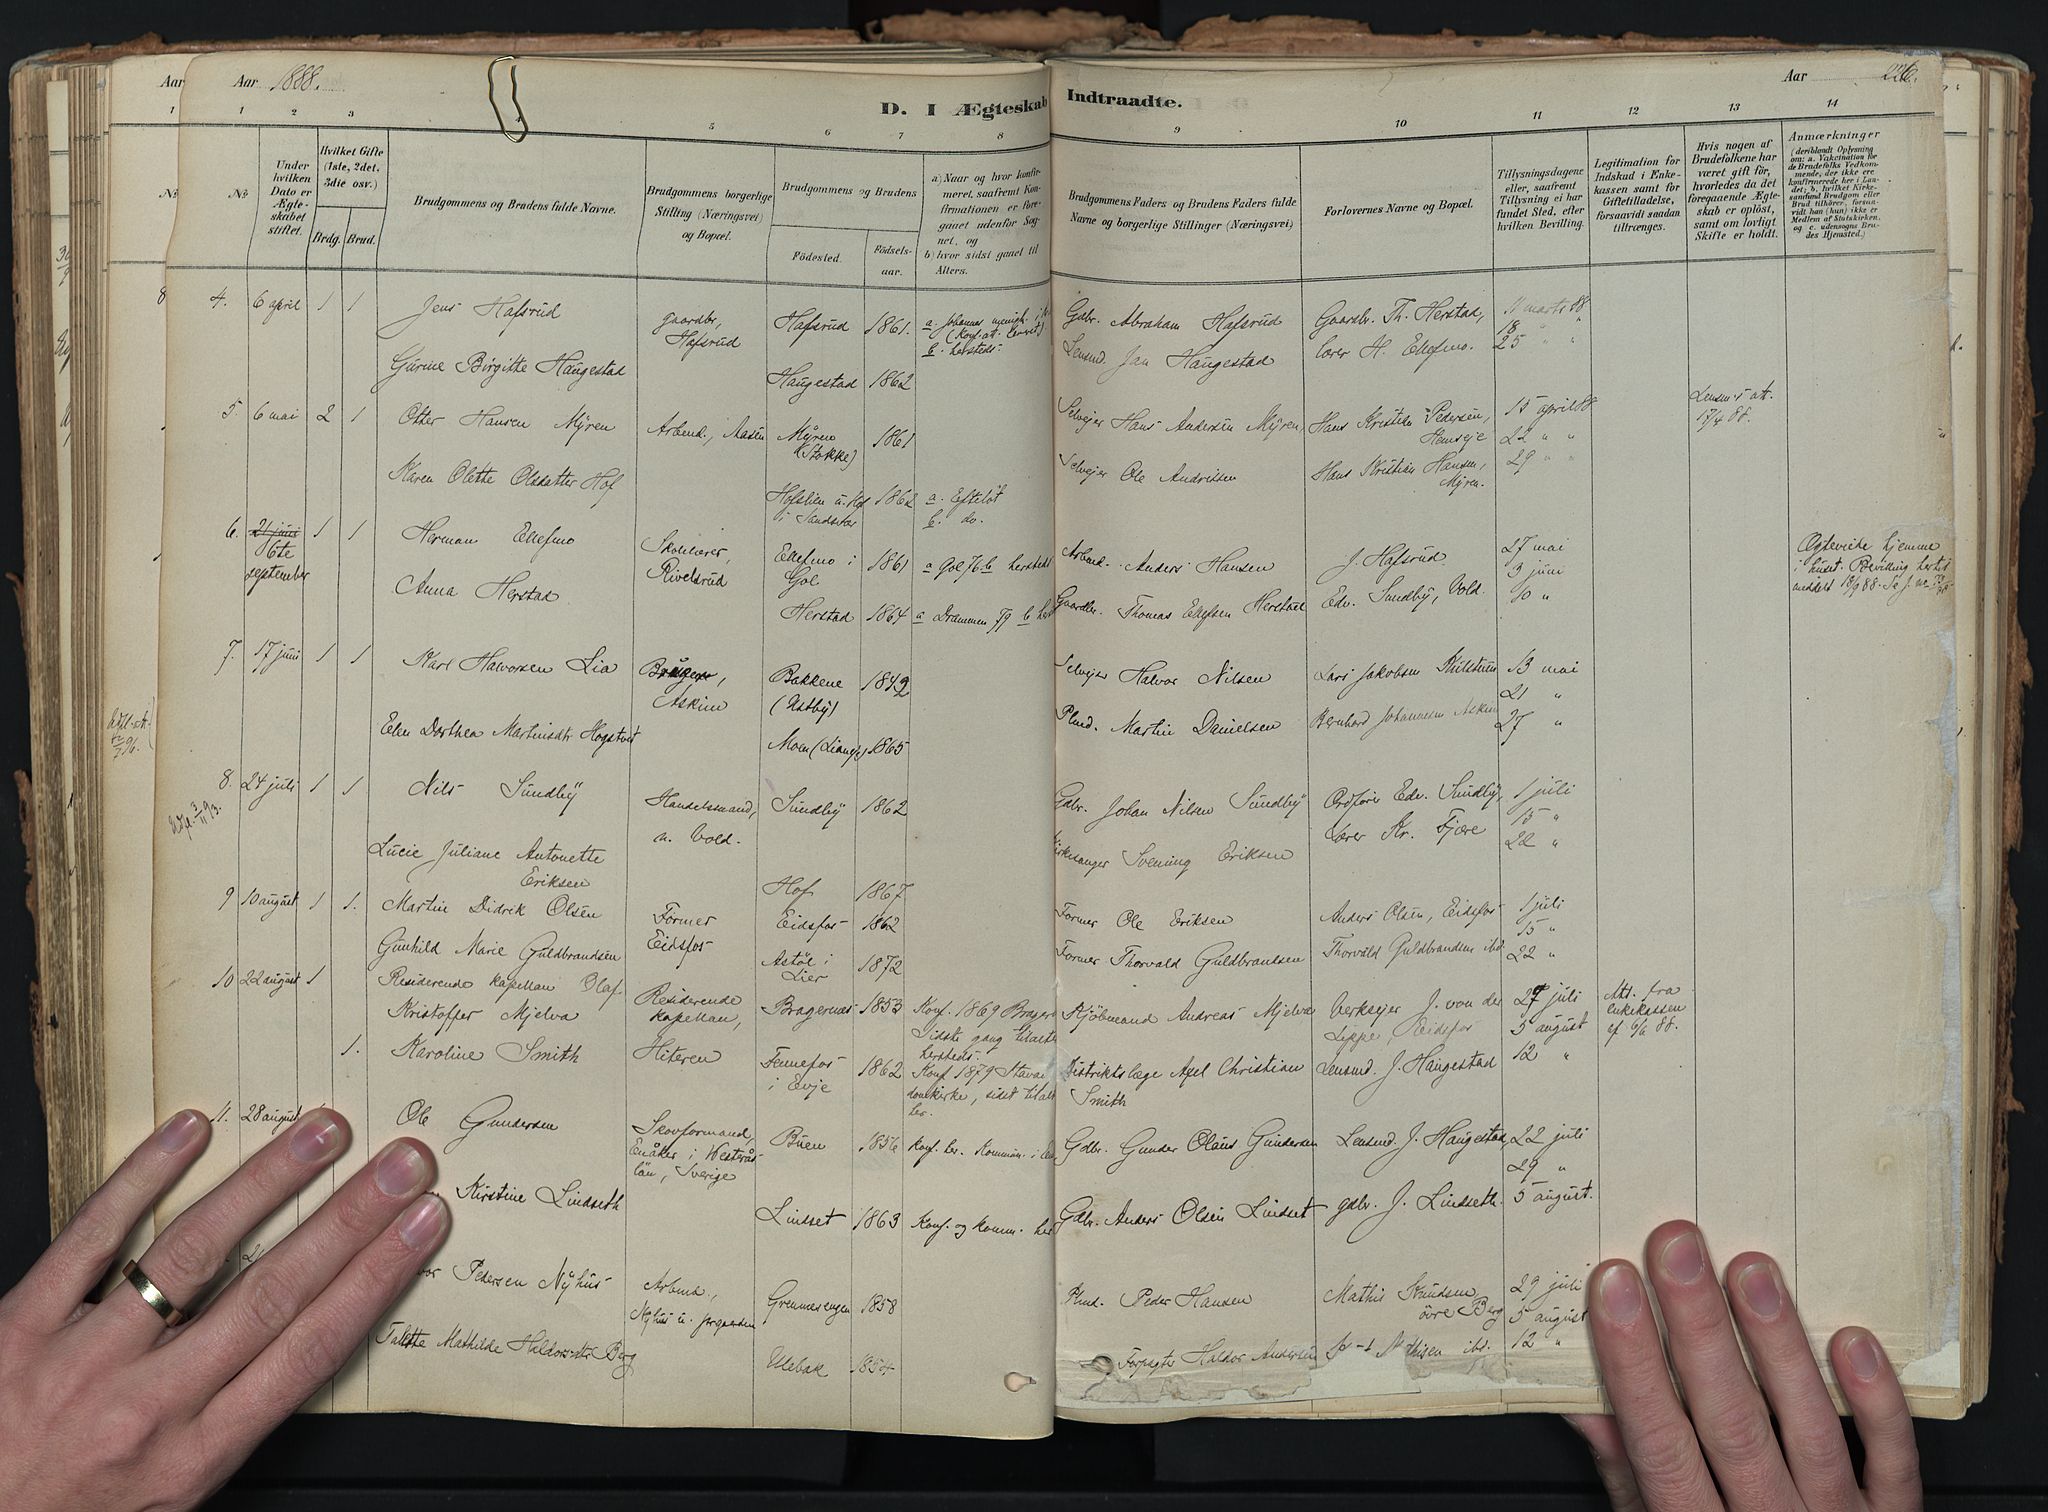 Aar
Aar 1888.
D. I Ægteskab Indtraadte.
Aar 226.
1 2 3 4 5 6 7 8 9 10 11 12 13 14
No.
Under hvilken Dato er Ægteskabet stiftet.
Hvilket Gifte (1ste, 2det, 3die osv.)
Brdg. Brud.
Brudgommens og Brudens fulde Navne.
Brudgommens borgerlige Stilling (Næringsvei) og Bopæl.
Brudgommens og Brudens
Fødested.
Fødselsaar.
a) Naar og hvor konfirmeret, saafremt Konfirmationen er foregaaet udenfor Sognet, og
b) hvor sidst gaaet til Alters.
Brudgommens Faders og Brudens Faders fulde Navne og borgerlige Stillinger (Næringsvei)
Forlovernes Navne og Bopæl.
Tillysningsdagene eller, saafremt Tillysning ei har fundet Sted, efter hvilken Bevilling.
Legitimation for Indskud i Enkekassen samt for Giftetilladelse, forsaavidt saadan tiltrænges.
Hvis nogen af Brudefolkene har været gift før, hvorledes da det foregaaende Ægteskab er opløst, samt om lovligt Skifte er holdt.
Anmærkninger
(deriblandt Oplysning om: a. Vakcination for de Brudefolks Vedkommende, der ikke ere konfirmerede her i Landet; b. hvilket Kirkesamfund Brudgom eller Brud tilhører, forsaavidt han (hun) ikke er Medlem af Statskirken, og c. udensogns Brudes Hjemsted.)
4. 6 april 1 1 Jens Hafsrud gaardbr., Hafsrud Hafsrud 1861. Gdbr. Abraham Hafsrud Gaardbr. Th. Herstad, 11 marts 88
18 " "
Gurine Birgitte Haugestad Haugestad 1862 b. hersteds. Lensmd. Jan Haugestad lærer H. Ellefmo. 25 " "
5. 6 mai 2 1 Otter Hansen Myren Arbmd., Aasen Myren (Stokke) 1861 Selvejer Hans Andersen Myren, Hans Kristian Pedersen, Hemseje 15 april 88 Lensm.s att. 17/4 88.
22 " "
Karen Olette Olsdatter Hof Hofslien u. Hof i Sandsvær 1862 a. Efteløt b. do. Selvejer Ole Andersen Hans Kristian Hansen, Myren. 29 " "
6. 21 juni 6te september 1 1 Herman Ellefmo Skolelærer, Rivelsrud Ellefmo i Gol 1861 a Gol 76. b hersteds Arbmd. Anders Hansen J. Hafsrud 27 mai
3 juni
Anna Herstad Herstad 1864 a Drammen 79 b Gaardbr. Thomas Ellefsen Herstad Edv. Sundby, Vold. 10 "
Ægteviede hjemme i huset. Bevilling
7. 17 juni 1 1 Karl Halvorsen Lia Askim Bakkene (Østby) 1842 Selvejer Halvor Nilsen Lars Jakobsen 13 mai
21 "
Elen Dorthea Martinsdtr Hogstvet Moen 1865 Plmd. Martin Danielsen Bernhard Johannesen Askim 27 "
8. 24 juli 1 1 Nils Sundby Handelsmand, n. Vold. Sundby 1862 Gdbr. Johan Nilsen Sundby Ordfører Edv. Sundby, 1 juli
15 "
Lucie Juliane Antonette Eriksen Hof 1867 Kirkesanger Svening Eriksen Lærer Kr. Fjære 22 "
9 10 august 1 1. Martin Didrik Olsen Former Eidsfos Eidsfos 1862 Former Ole Eriksen Anders Olsen, Eidsfos 1 juli
15 "
Gunhild Marie Guldbrandsen Astøl i Lier 1872 Former Thorvald Guldbrandsen Thorvald Guldbrandsen ibd. 22 "
10 22 august 1 Residerende kapellan Olaf Kristoffer Mjelva Residerende kapellan, Hiteren Bragernes 1853 Konf. 1869 Sidste gang til alters hersteds. Kjøbmand Andreas Mjelva Verkseier J. von der Lippe, Eidsfos 27 juli
5 august Att. fra enkekassen af 6/6 88.
1. Karoline Smith Fennefos i Evje 1862 Konf. 1879 domkirke, sidst til alt. her. Distriktslæge Axel Christian Smith Lensmd. J. Haugestad 12 "
11. 28 august Ole Gundersen Skovformand, Enåker i Westerås län, Sverige Buen 1856 Konf. her. Gdbr. Gunder Olaus Gundersen Lensmd. J. Haugestad, 22 juli
29 "
Kirstine Lindseth Lindset 1863 Konf. og komm. her Gdbr. Anders Olsen Lindset gdbr. J. Lindseth. 5 august.
Pedersen Nyhus Arbmd., Nyhus u. Grennesengen 1858 Plmd. Peder Hansen Mathis Knudsen, øvre Berg 29 juli
5 august
Mathilde Haldorsdtr Berg Ullebak 1854 Forpagter Haldor Andersen ibd. 12 "